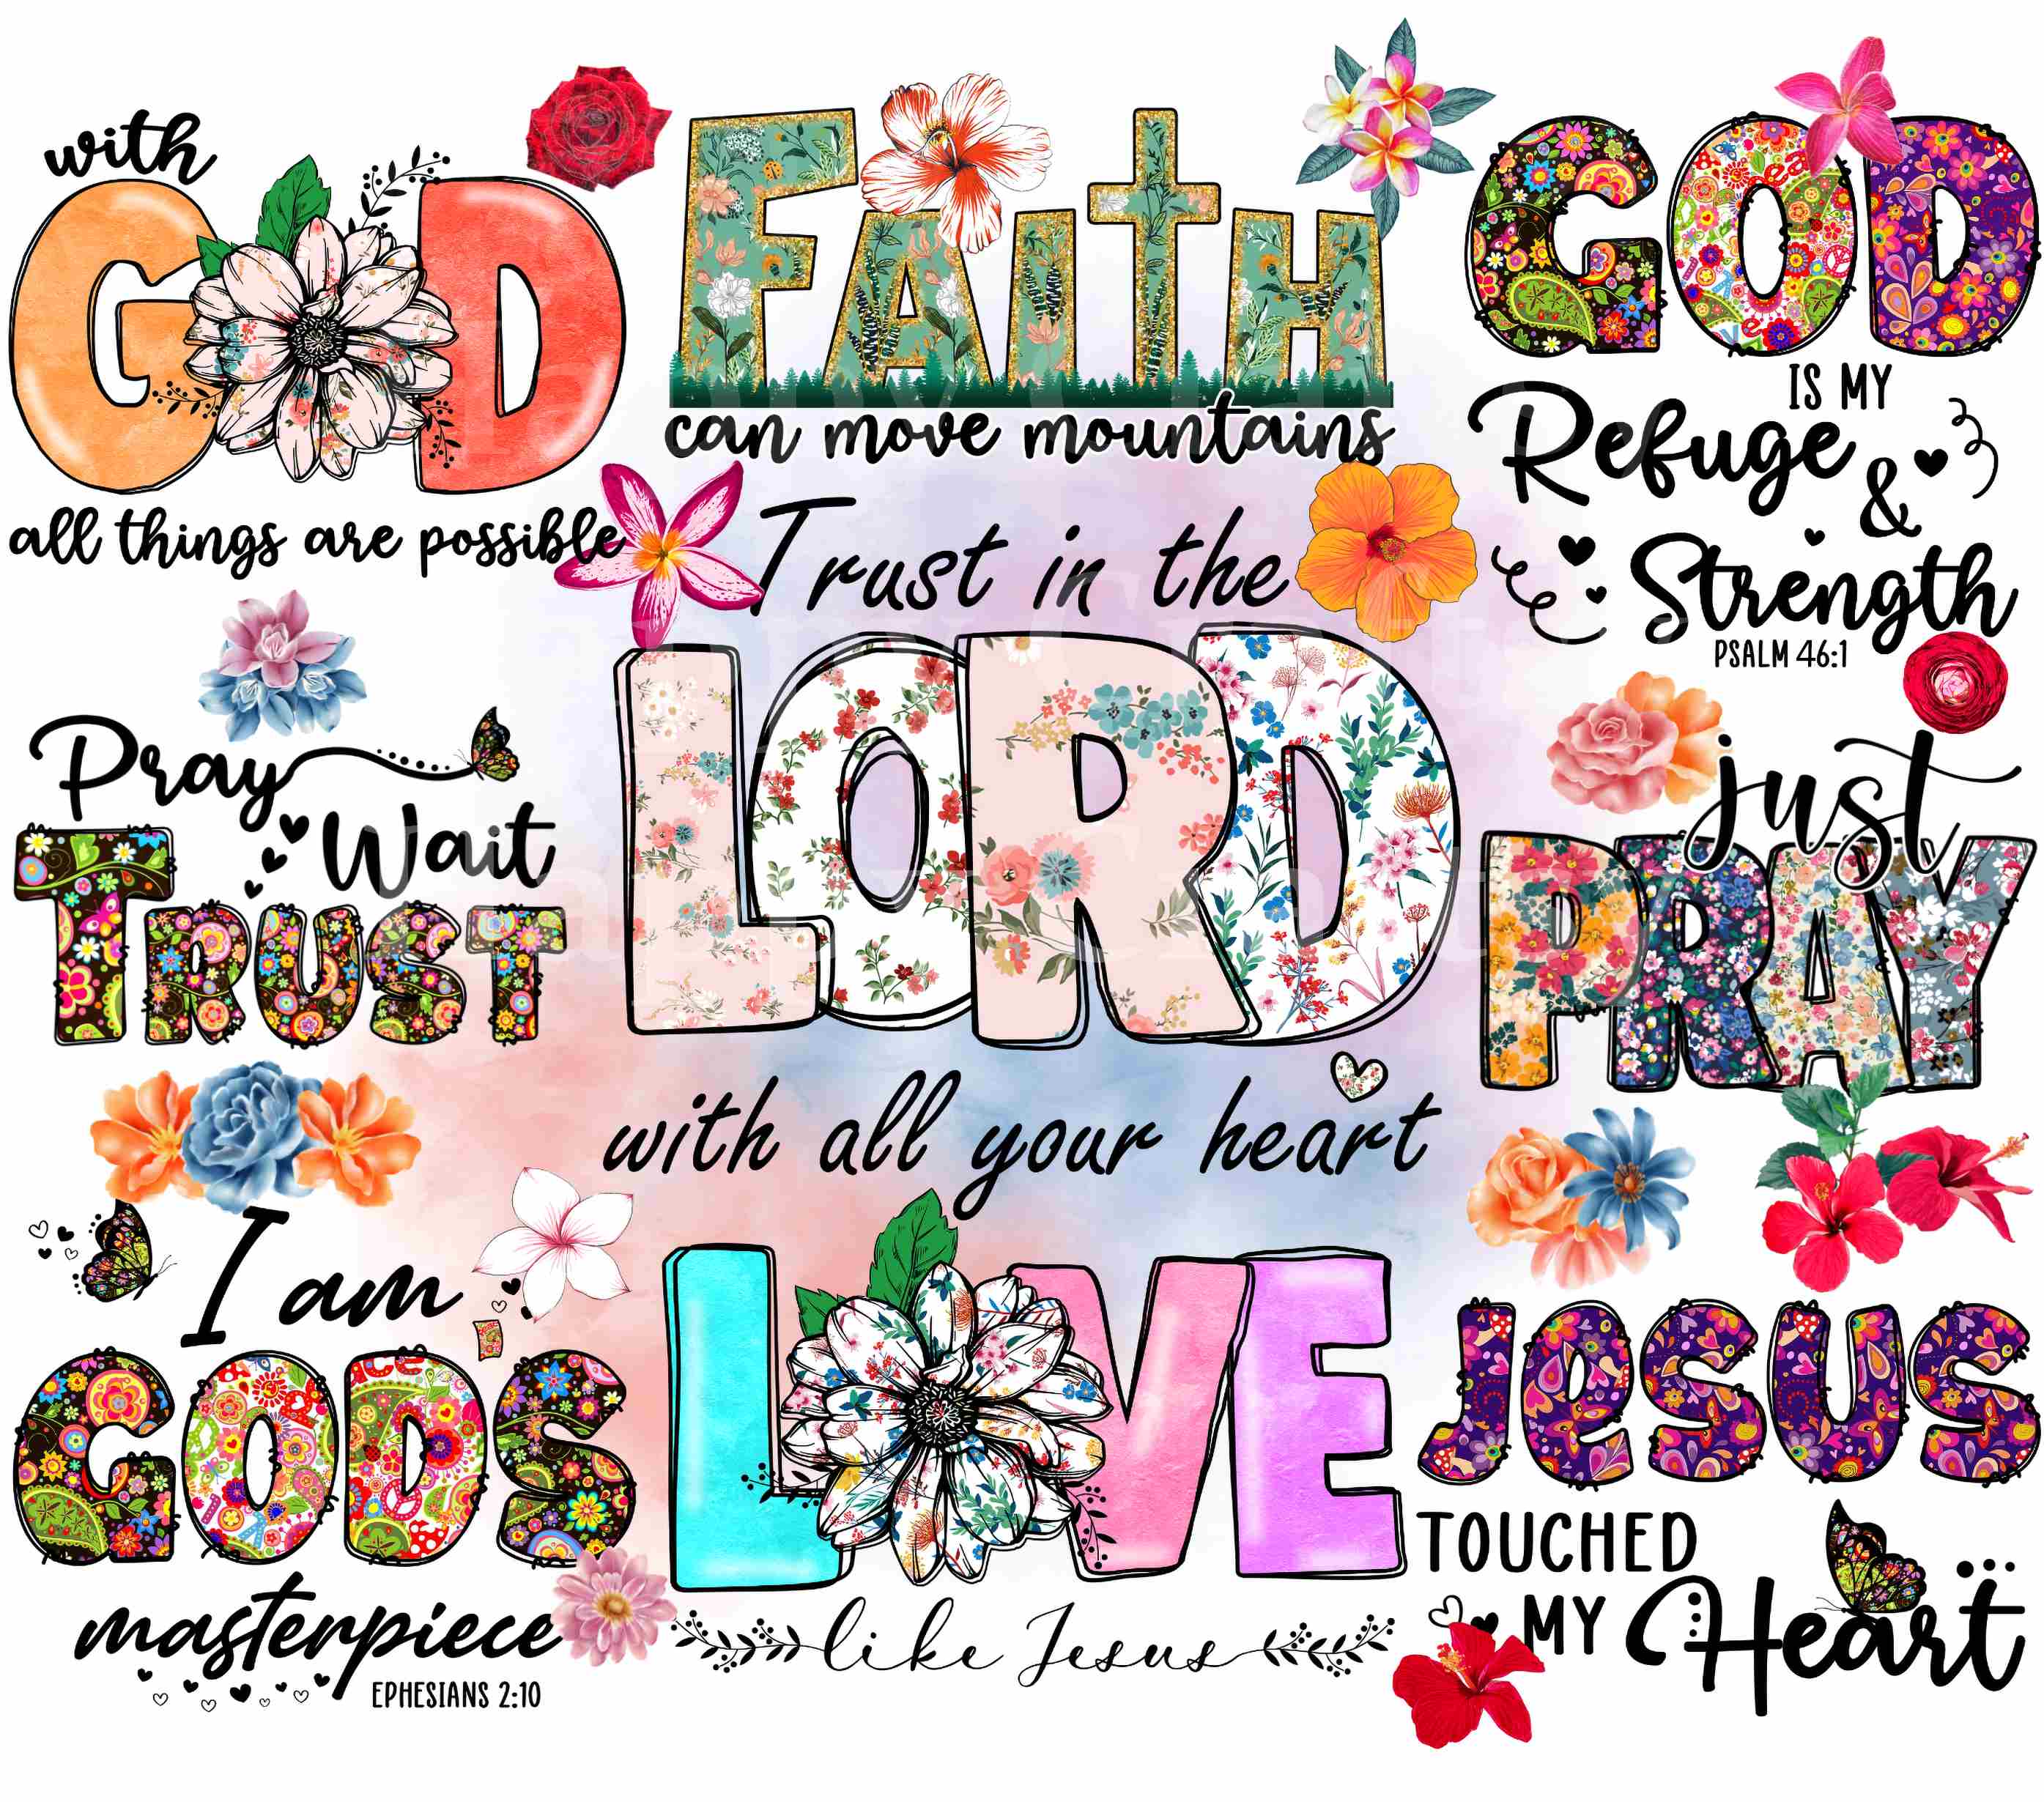 with
GOD
all things are possible
FAITH
can move mountains
GOD
IS MY
Refuge
&
Strength
PSALM 46:1
Trust in the
LORD
with all your heart
Pray
Wait
TRUST
just
PRAY
I am
GOD'S
masterpiece
EPHESIANS 2:10
LOVE
like Jesus
JESUS
TOUCHED
MY Heart